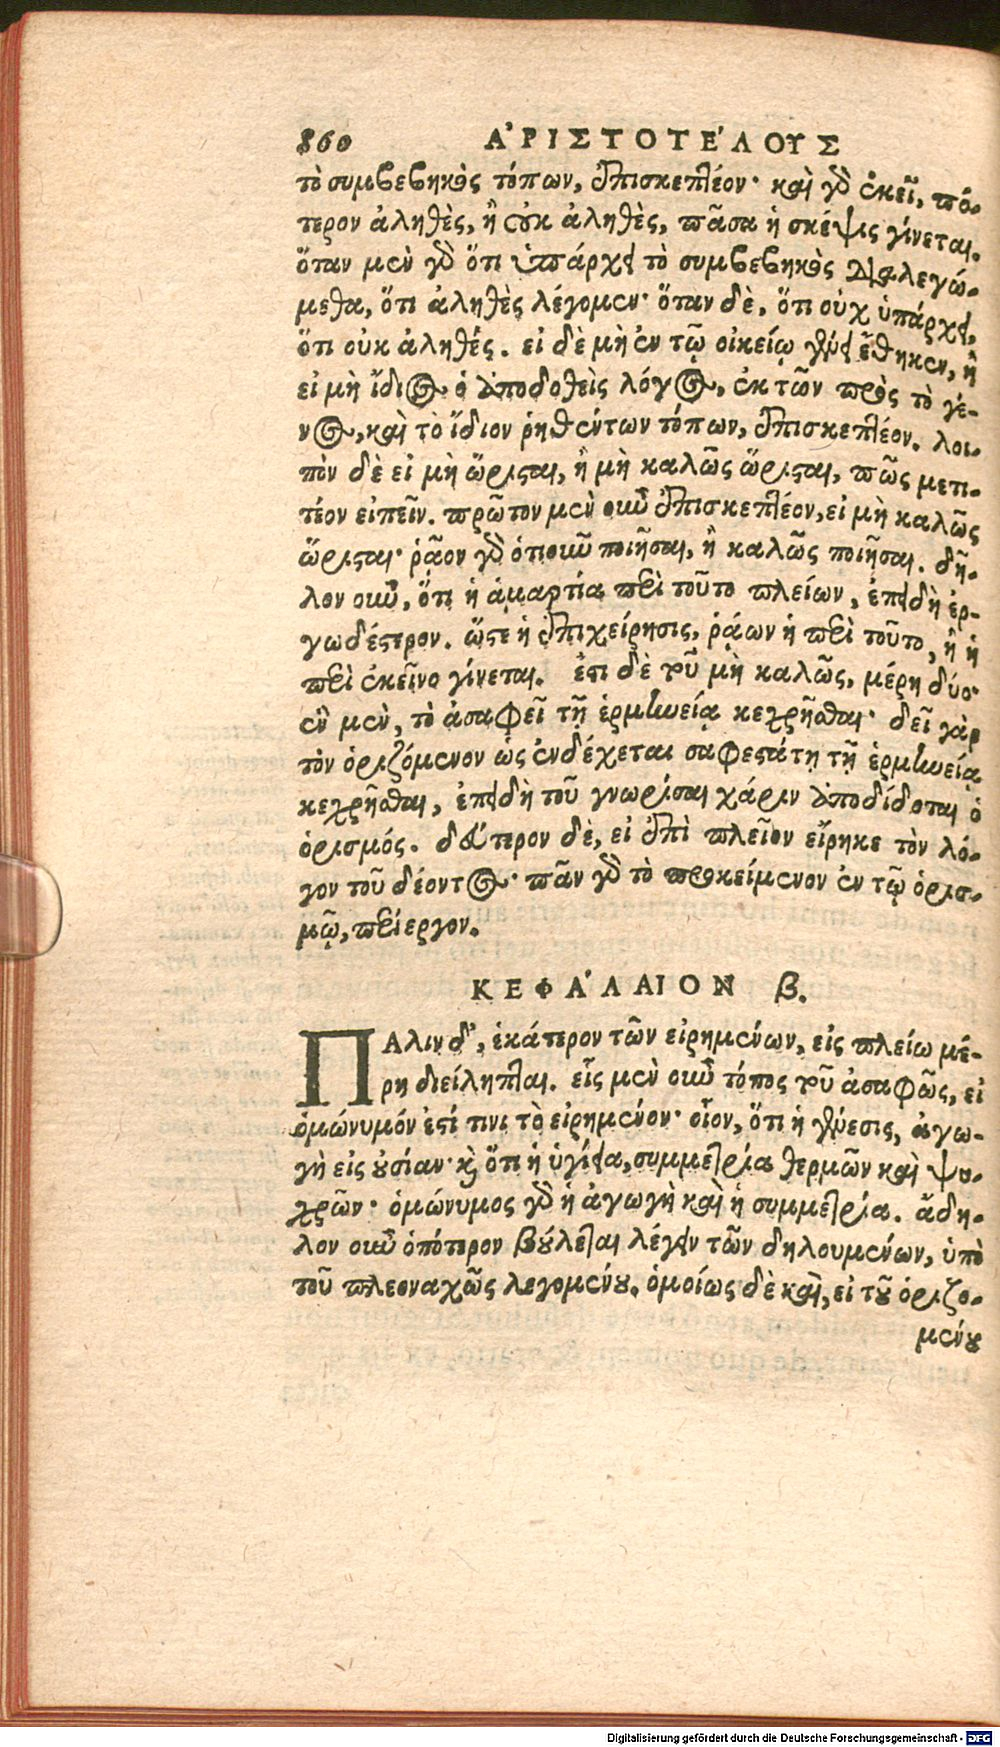 860 ἈΡΙΣΤΟΤΈΛΟΥΣ
τὸ συμβεβηκὸς τόπων, ἐπισκεπτέον· καὶ γὰρ ἐκεῖ, πό-
τερον ἀληθὲς, ἢ οὐκ ἀληθὲς, πᾶσα ἡ σκέψις γίνεται.
ὅταν μὲν γὰρ ὅτι ὑπάρχει τὸ συμβεβηκὸς διαλεγώ-
μεθα, ὅτι ἀληθὲς λέγομεν· ὅταν δὲ, ὅτι οὐχ ὑπάρχει,
ὅτι οὐκ ἀληθές. εἰ δὲ μὴ ἐν τῷ οἰκείῳ γένει ἔθηκεν, ἢ
εἰ μὴ ἴδιος ὁ ἀποδοθεὶς λόγος, ἐκ τῶν πρὸς τὸ γέ-
νος, καὶ τὸ ἴδιον ῥηθέντων τόπων, ἐπισκεπτέον. λοι-
πὸν δὲ εἰ μὴ ὥρισται, ἢ μὴ καλῶς ὥρισται, πῶς μετι-
τέον εἰπεῖν. πρῶτον μὲν οὖν ἐπισκεπτέον, εἰ μὴ καλῶς
ὥρισται· ῥᾷον γὰρ ὁτιοῦν ποιῆσαι, ἢ καλῶς ποιῆσαι. δῆ-
λον οὖν, ὅτι ἡ ἁμαρτία περὶ τοῦτο πλείων, ἐπειδὴ ἐρ-
γωδέστερον. ὥστε ἡ ἐπιχείρησις, ῥᾴων ἡ περὶ τοῦτο, ἢ ἡ
περὶ ἐκεῖνο γίνεται. ἔστι δὲ τοῦ μὴ καλῶς, μέρη δύο·
ἓν μὲν, τὸ ἀσαφεῖ τῇ ἑρμηνείᾳ κεχρῆσθαι· δεῖ γὰρ
τὸν ὁριζόμενον ὡς ἐνδέχεται σαφεστάτῃ τῇ ἑρμηνείᾳ
κεχρῆσθαι, ἐπειδὴ τοῦ γνωρίσαι χάριν ἀποδίδοται ὁ
ὁρισμός. δεύτερον δὲ, εἰ ἐπὶ πλεῖον εἴρηκε τὸν λό-
γον τοῦ δέοντος· πᾶν γὰρ τὸ προκείμενον ἐν τῷ ὁρισ-
μῷ, περίεργον.
ΚΕΦΆΛΑΙΟΝ β.
ΠΑλιν δ', ἑκάτερον τῶν εἰρημένων, εἰς πλείω μέ-
ρη διείληπται. εἷς μὲν οὖν τόπος τοῦ ἀσαφῶς, εἰ
ὁμώνυμόν ἐστί τινι τὸ εἰρημένον· οἷον, ὅτι ἡ γένεσις, ἀγω-
γὴ εἰς οὐσίαν· καὶ ὅτι ἡ ὑγίεια, συμμετρία θερμῶν καὶ ψυ-
χρῶν· ὁμώνυμος γὰρ ἡ ἀγωγὴ καὶ ἡ συμμετρία. ἄδη-
λον οὖν ὁπότερον βούλεται λέγειν τῶν δηλουμένων, ὑπὸ
τοῦ πλεοναχῶς λεγομένου. ὁμοίως δὲ καὶ, εἰ τοῦ ὁριζο-
μένου
Digitalisierung gefördert durch die Deutsche Forschungsgemeinschaft - DFG